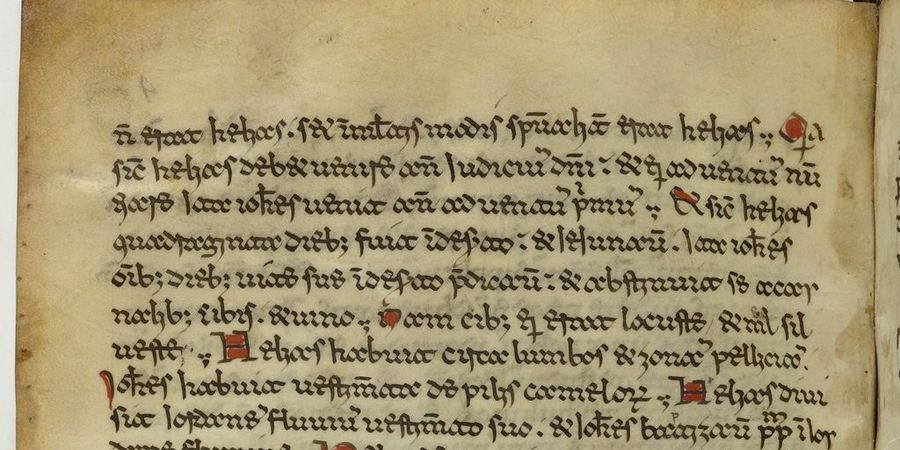 n̄ erat helias. sed in multis modis sp̄ualit̄ erat helias; Qa
sic̄ helias debet uenire an̄ Iudiciū dn̄i: & p aduentū nun
ciare Ita ioh̄es uenit an̄ aduentū p̄mū; Et sic̄ helias
quadraginta dieb; fuit īdeserto: & Ieiunauit. Ita ioh̄es
om̄ib; dieb; uite sue īdeserto p̄dicauit: & abstinuit se acar
nalib; cibis. & uino; Nam cib; ei erat locuste & mel sil
uestre; Helias habuit circa lumbos & zonā pelliciā.
Ioh̄es habuit uestim̄ta de pilis camelorꝝ; Helias diui
sit Iordane fluuiū uestim̄to suo. & Ioh̄es baptizauit